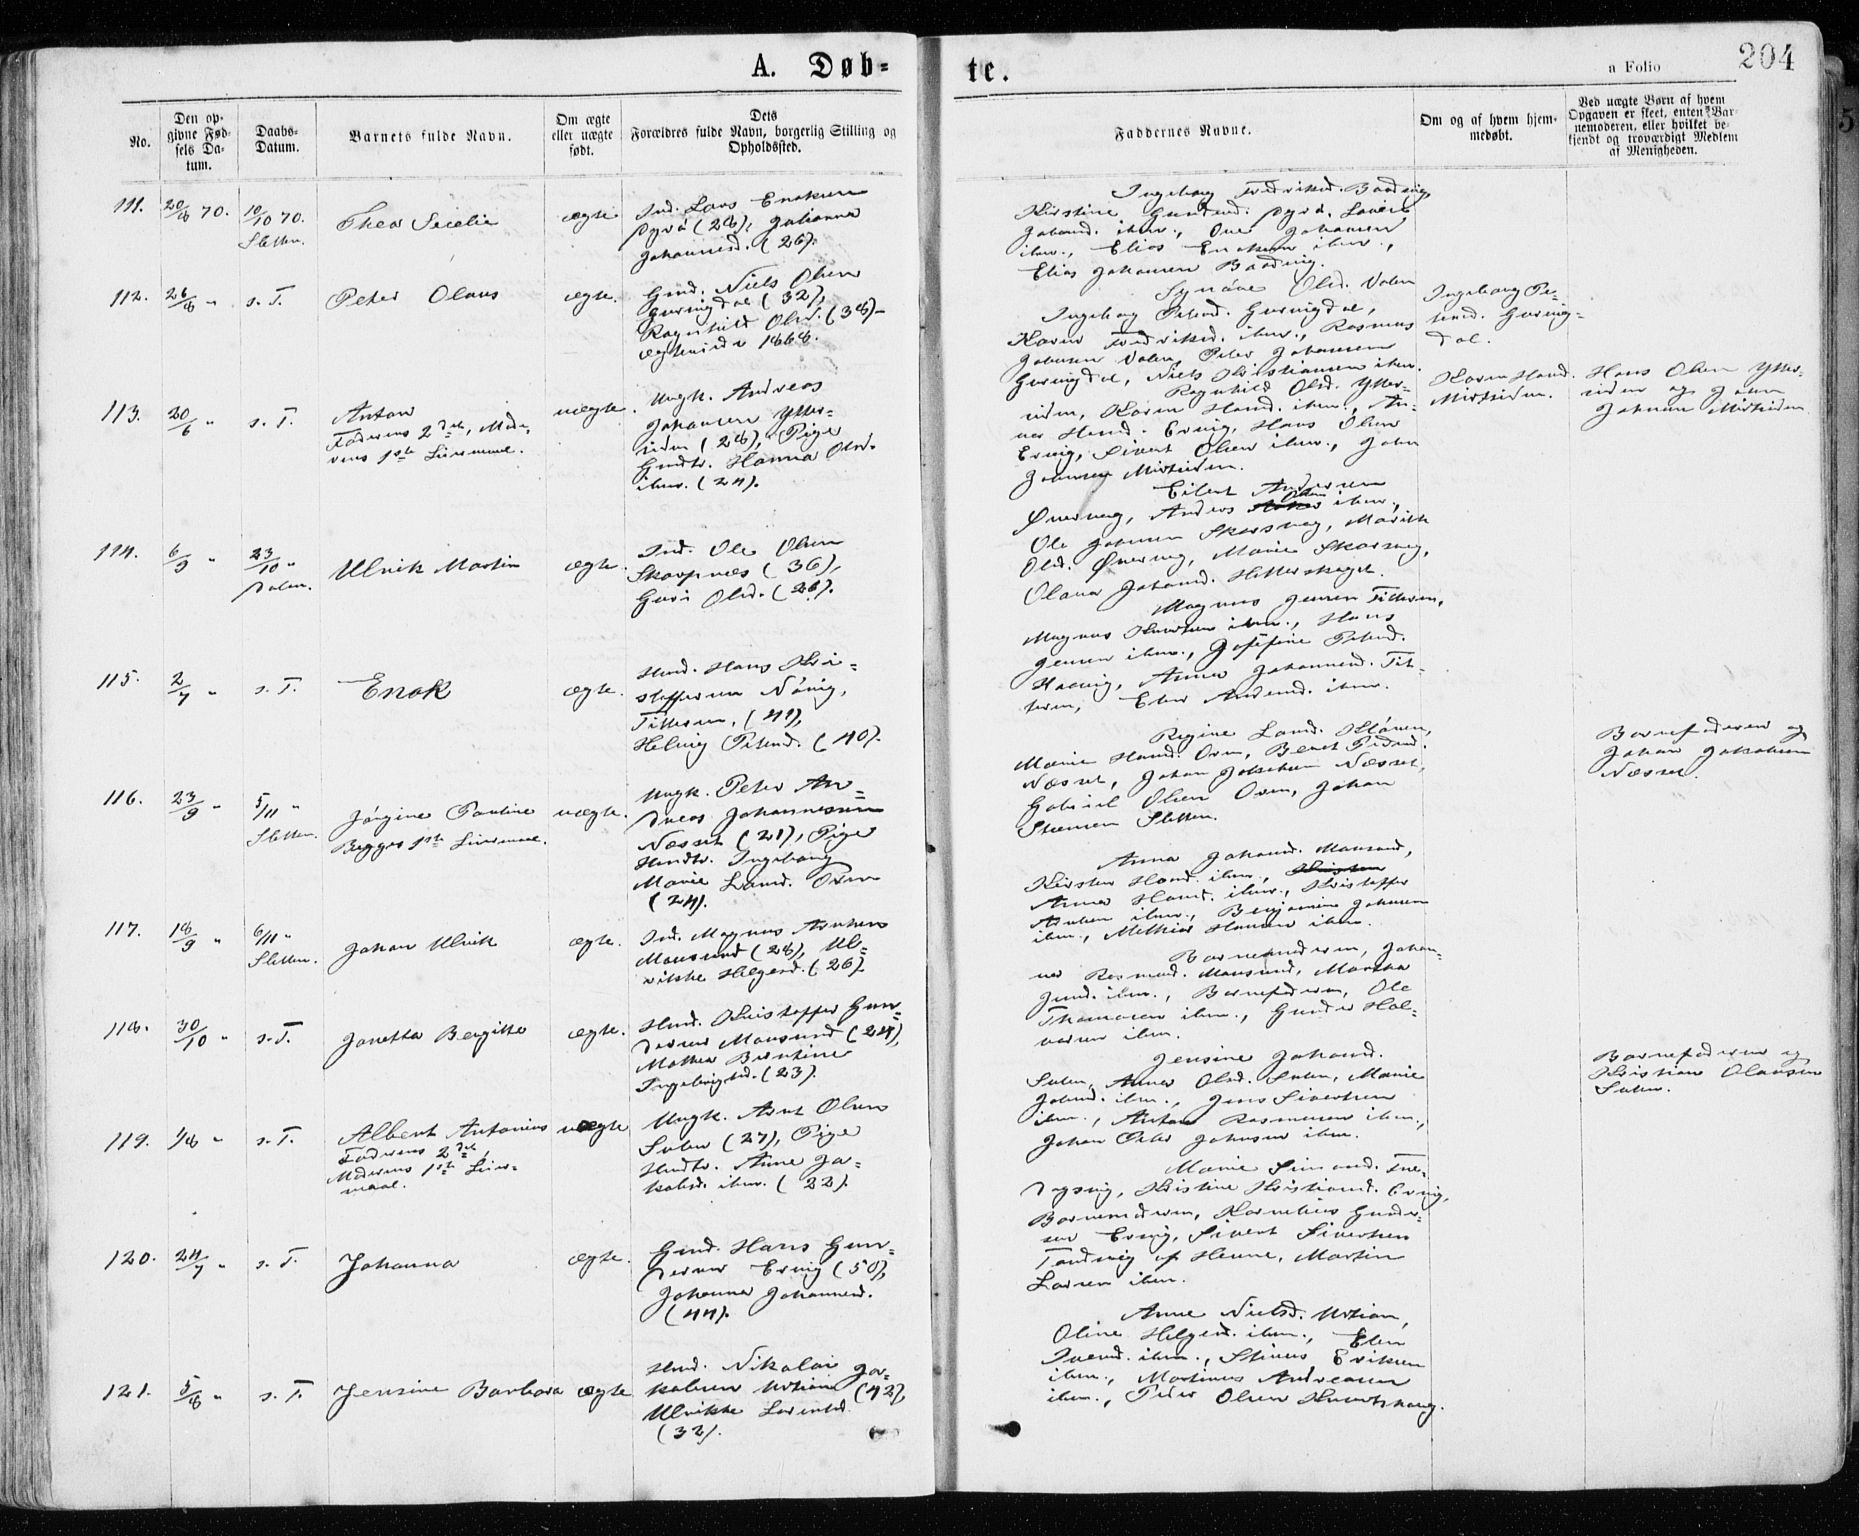 A. Døb=
te.
a Folio
204
No.
Den op-
givne Fød-
sels Da-
tum.
Daabs-
Datum.
Barnets fulde Navn.
Om ægte
eller uægte
født.
Dets
Forældres fulde Navn, borgerlig Stilling og
Opholdssted.
Faddernes Navne.
Om og af hvem hjem-
medøbt.
Ved uægte Børn af hvem
Opgaven er skeet, enten Bar-
nemoderen, eller hvilket be-
kjendt og troværdigt Medlem
af Menigheden.
111.
20/8 70.
10/10 70.
Sletten.
Thea Secelie
ægte
Ind. Lars Enoksen
Dyrö (28), Johanna
Johannesd. (26).
Ingeborg Fredriksd.
Kirstine
ibm., Ove Johansen
ibm., Elias Enoksen ibm.,
Elias Johansen
112.
26/8 "
s. T.
Peter Olaus
ægte.
Gmd. Niels Olsen
(32),
Ragnhild Olsd. (38)
1868.
Olsd. Valen
Ingeborg Petersd.
Karen Fredriksd. ibm., Rasmus
Johnsen Valen, Peter Johansen
Niels Kristiansen ibm.
Ingeborg Pe-
tersd.
dal.
113.
20/6 "
s. T.
Anton
Faderens 2det, Mode-
rens 1ste Leiermaal.
uægte.
Ungk. Andreas
Johansen Ytter-
siden (28), Pige
Hanna Olsd.
ibm. (24).
Ragnhild Olsd. Ytter-
siden, Karen Hansd. ibm., An-
na Hansd. Ervig, Hans Olsen
Ervig, Sivert Olsen ibm., John
Johnsen Midtsiden.
Karen Hansd.
Midtsiden.
Hans Olsen Ytter-
siden og John
Johnsen Midtsiden
114.
6/9 "
23/10 "
Ulrik Martin
ægte.
Ind. Ole Olsen
Skarpnes (36),
Guri Olsd. (26).
Eilert Andersen
Anders Olsen ibm.,
Ole Johnsen Marith
Olsd. Marie
Olava Johansd.
115.
2/7 "
s. T.
Enok
ægte.
Hmd. Hans Kri-
stoffersen
Titteren, (41),
Helvig Petersd. (40).
Magnus Jensen Titteren,
Magnus ibm., Hans
Jensen ibm., Josefine Petersd.
Anna Johannesd. Tit-
teren, Andersd. ibm.
116.
23/9 "
5/11 "
Sletten.
Jørgine Pauline
Begges 1ste Leiermaal.
uægte.
Ungk. Peter An-
dreas Johannessen
Næsset (21), Pige
Ingeborg
Marie Larsd.
(24).
Regine Larsd.
Marie Hansd.
Næsset, Johan Jakobsen Næsset,
Gabriel Olsen Johan
Sletten.
Barnefaderen og
Johan Jakobsen
Næsset.
117.
18/9 "
6/11 "
Sletten.
Johan Ulrik
ægte.
Ind. Magnus
Mausund (28), Ul-
rikke Helgesd. (26).
Anna Johansd. Mausund,
Kirsten Hansd. ibm.,
Anna Hansd. ibm., Kristoffer
ibm., Benjamin Johnsen
ibm., Mathias Hansen ibm.
118.
30/10 "
s. T.
Janetta Bergitte
ægte.
Hmd. Kristoffer Gun-
dersen Mausund (24),
Mathea Berntine
Ingebrigtsd. (23).
Barnemoderen, Johan-
na Rasmusd. Mausund, Martha
Jensd. ibm., Barnefaderen, Ole
Thomasen ibm., Gunder Hal-
vorsen ibm.
119.
1/8 "
s. T.
Albert Antonius
Faderens 2det,
Moderens 1ste Leier-
maal.
uægte
Ungk. Arnt Olsen
Sulen (27), Pige
Anne Ja-
kobsd. ibm. (22).
Jensine Johansd.
Sulen, Anna Olsd. Sulen, Marie
Johnsd. ibm., Jens Sivertsen
ibm., Anton Rasmusen ibm.,
Johan Peter Johnsen ibm.
Barnefaderen og
Kristian Olausen
Sulen.
120.
24/7 "
s. T.
Johanna
ægte.
Gmd. Hans Gun-
dersen Ervig (50),
Johanna Johannesd.
(44).
Marie Simonsd.
Kristine Kristiansd. Ervig,
Barnemoderen, Kornelius Gunder-
sen Ervig, Sivert Sivertsen
af Hemne, Martin
Larsen ibm.
121.
5/8 "
s. T.
Jensine Barbara
ægte
Hmd. Nikolai Ja-
kobsen (42),
Ulrikke Lorentsd.
(32).
Anne Nielsd.
Oline Helgesd. ibm., Elen
ibm., Eriksen
ibm., Martinus Andreasen
ibm., Peder Olsen